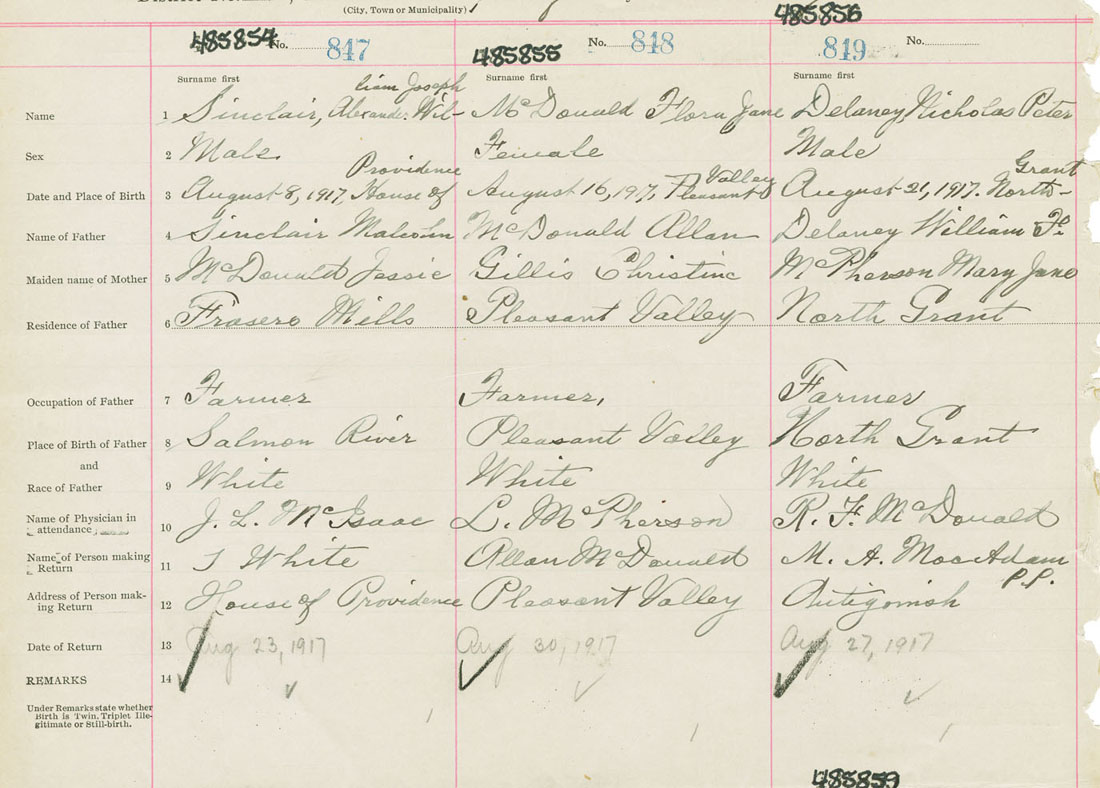 (City, Town or Municipality)
485854 No. 847
485855 No. 848
485856
849 No.
Surname first Surname first Surname first
liam Joseph
Name 1 Sinclair, Alexander Wil- McDonald Flora Jane Delaney, Nicholas Peter
Sex 2 Male Female Male
Providence Valley Grant
Date and Place of Birth 3 August 8, 1917, House of August 16, 1917, Pleasant August 21, 1917. North-
Name of Father 4 Sinclair Malcolm McDonald Allan Delaney William F.
Maiden name of Mother 5 McDonald Jessie Gillis Christine McPherson Mary Jane
Residence of Father 6 Frasers Mills Pleasant Valley North Grant
Occupation of Father 7 Farmer Farmer, Farmer
Place of Birth of Father 8 Salmon River Pleasant Valley North Grant
and
Race of Father 9 White White White
Name of Physician in
attendance 10 J. L. McIsaac L. McPherson R. F. McDonald
Name of Person making
Return 11 White Allan McDonald M. A. MacAdam
P.P.
Address of Person mak-
ing Return 12 House of Providence Pleasant Valley Antigonish
Date of Return 13 Aug 23, 1917 Aug 30, 1917 Aug 27, 1917
REMARKS 14
Under Remarks state whether
Birth is Twin, Triplet Ille-
gitimate or Still-birth.
485859